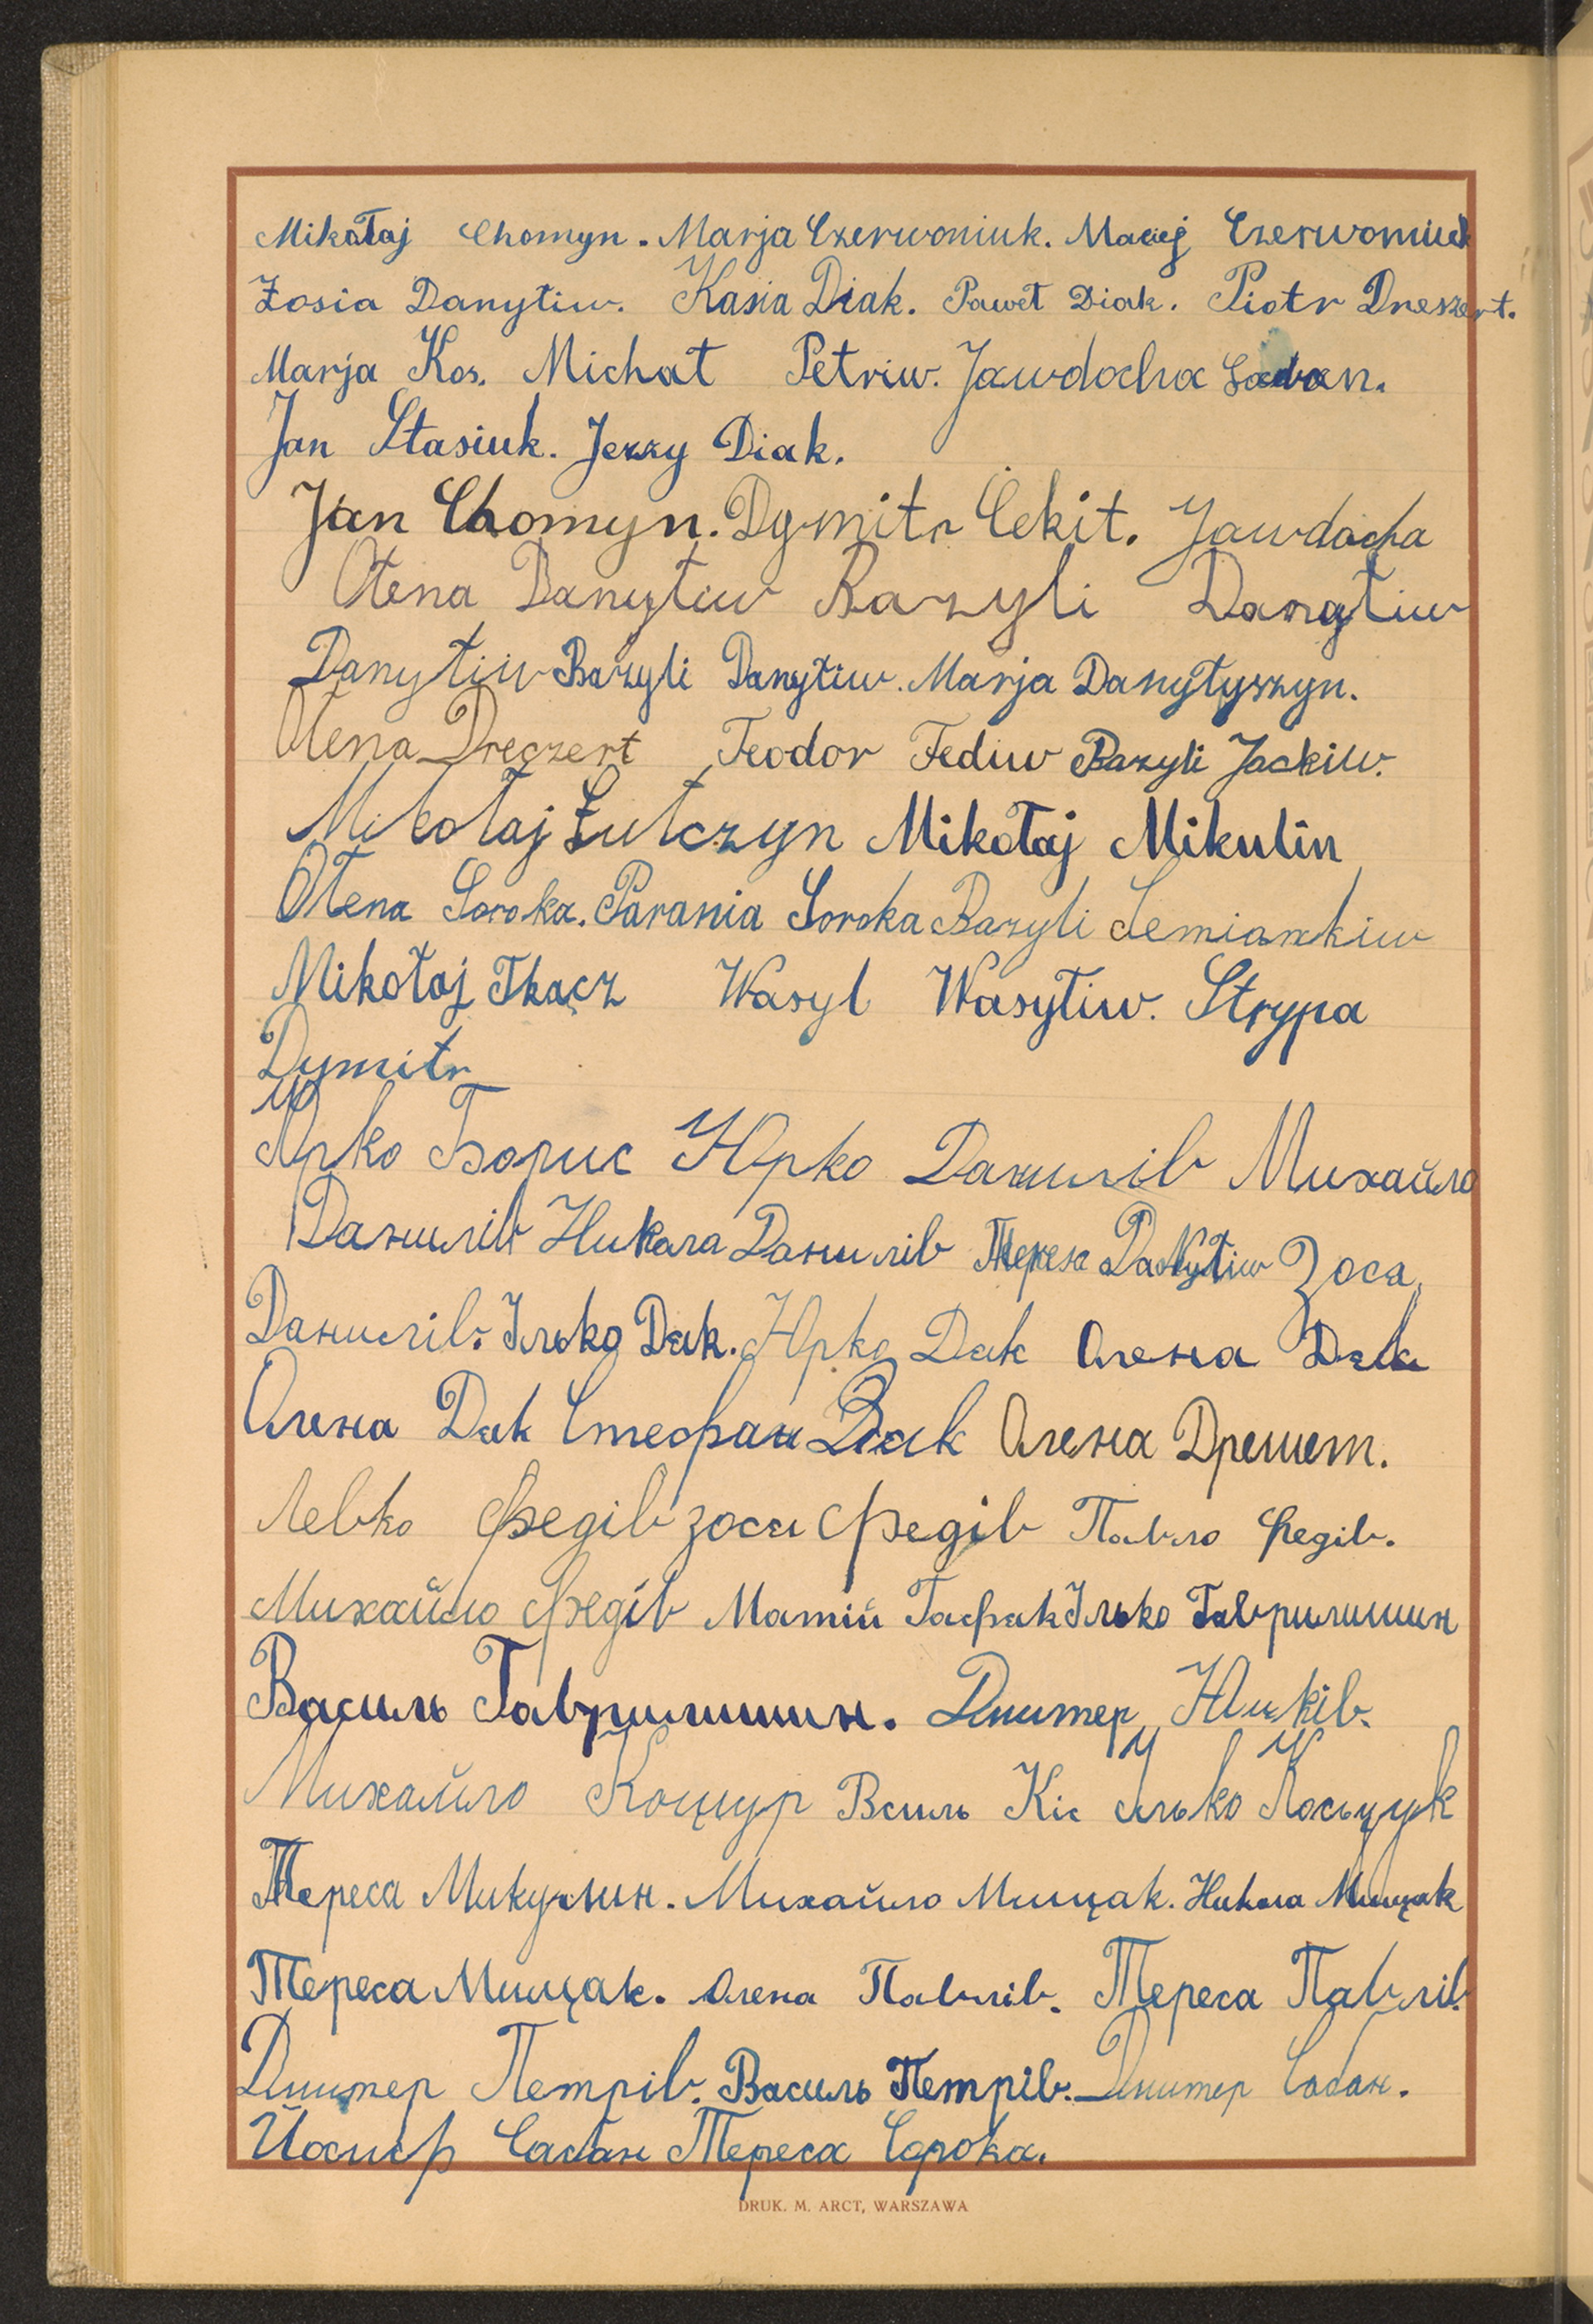 Mikołaj Chomyn. Marja Czerwoniuk. Maciej Czerwoniuk
Zosia Danyłiw. Kasia Diak. Paweł Diak. Piotr Dreszert.
Marja Kos. Michał Petriw. Jawdocha Saban.
Jan Stasiuk. Jerzy Diak.
Jan Chomyn. Dymitr Cekit. Jawdocha
Ołena Danyłiw Bazyli Danyłiw
Danyłiw Bazyli Danyłiw. Marja Danyłyszyn.
Olena Dreszert Teodor Fediw Bazyli Jackiw.
Mikołaj Łulczyn Mikołaj Mikulin
Ołena Soroka. Parania Soroka Bazyli
Mikołaj Tkacz Wasyl Wasyłiw. Strypa
Dymitr
Юрко Борис Юрко Данилів Михайло
Данилів Никола Данилів Тереса Danyłiw Зося
Данилів. Ілько Дяк. Юрко Дяк Олена Дяк
Олена Дяк Стефан Дяк Олена Дрешет.
Левко Федів Зося Федів Павло Федів.
Михайло Федів Матій Гафяк Ілько Гаврилишин
Василь Гаврилишин. Дмитер Южків.
Михайло Коцур Василь Кіс Ілько
Тереса Микулин. Михайло Мицак. Никола Мицак
Тереса Мицак. Олена Павлів. Тереса Павлів.
Дмитер Петрів. Василь Петрів. Дмитер Сабан.
Йосиф Сабан Тереса Сорока.
DRUK. M. ARCT, WARSZAWA